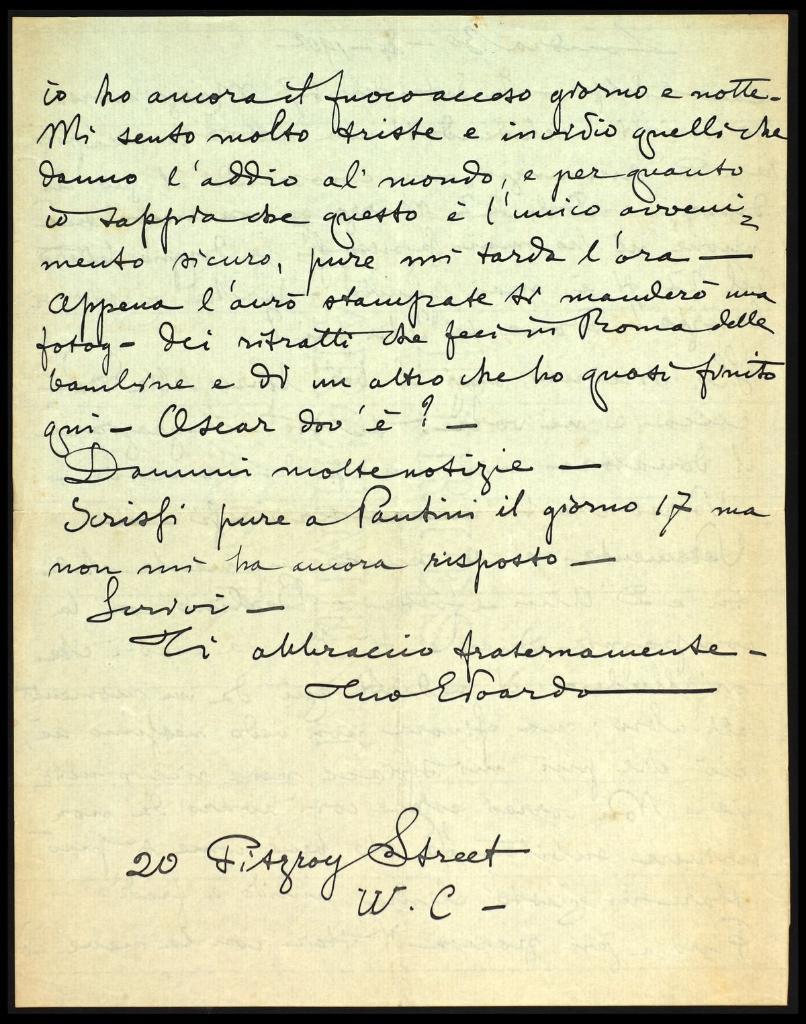 io ho ancora il fuoco acceso giorno e notte-
Mi sento molto triste e invidio quelli che
danno l'addio al' mondo, e per quanto
io sappia che questo è l'unico avveni=
mento sicuro, pure mi tarda l'ora —
Appena l'avrò stampate ti manderò una
fotog- dei ritratti che feci in Roma delle
bambine e di un altro che ho quasi finito
qui - Oscar dov'è? -
Dammi molte notizie —
Scrissi pure a Pantini il giorno 17 ma
non mi ha ancora risposto —
Scrivi -
Ti abbraccio fraternamente -
Tuo Edoardo
20 Fitzroy Street
W. C -